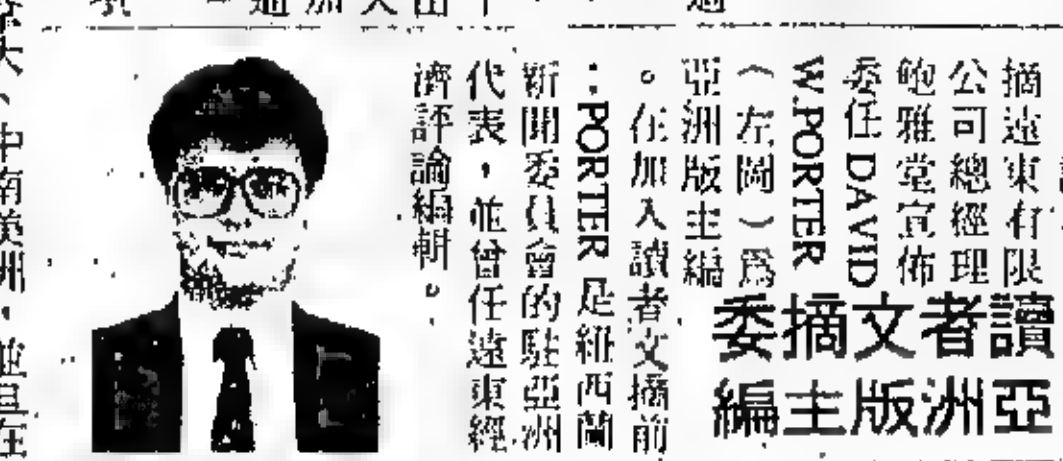 讀者文摘委
亞洲版主編
摘遠東有限
公司總經理
鮑雅堂宣佈
委任 DAVID
W.PORTER
（左圖）爲
亞洲版主編
。在加入讀者文摘前
：PORTER 是紐西蘭
新聞委員會的駐亞洲
代表，並曾任遠東經
濟評論編輯。
、中南美洲，並且在